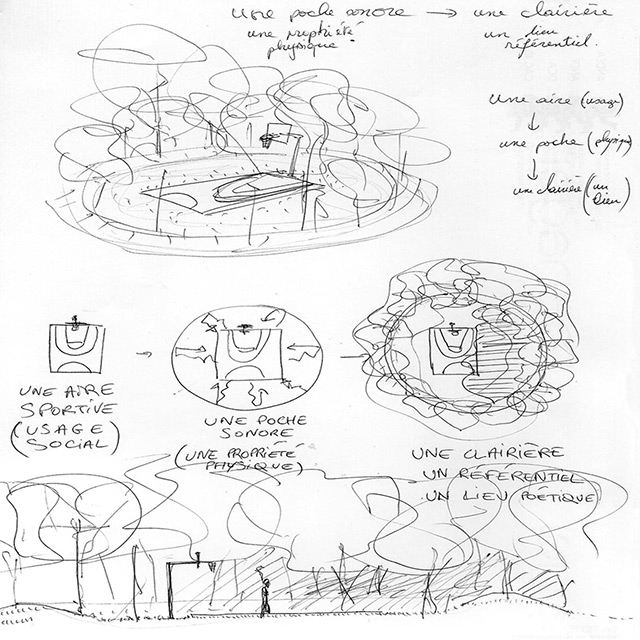 une poche sonore → une clairière
une propriété physique
un lieu référentiel.
une aire (usage)
↓
une poche (physique)
↓
une clairière (un lieu)
UNE AIRE
SPORTIVE
(USAGE
SOCIAL)
UNE POCHE
SONORE
(UNE PROPRIÉTÉ
PHYSIQUE)
UNE CLAIRIÈRE
UN RÉFÉRENTIEL
UN LIEU POÉTIQUE